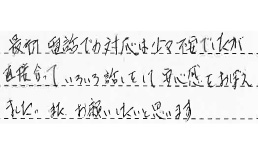 最初 電話での対応は少々不安でしたが
直接会っていろいろ話をして安心感をおぼえ
ました。また お願いしたいと思います